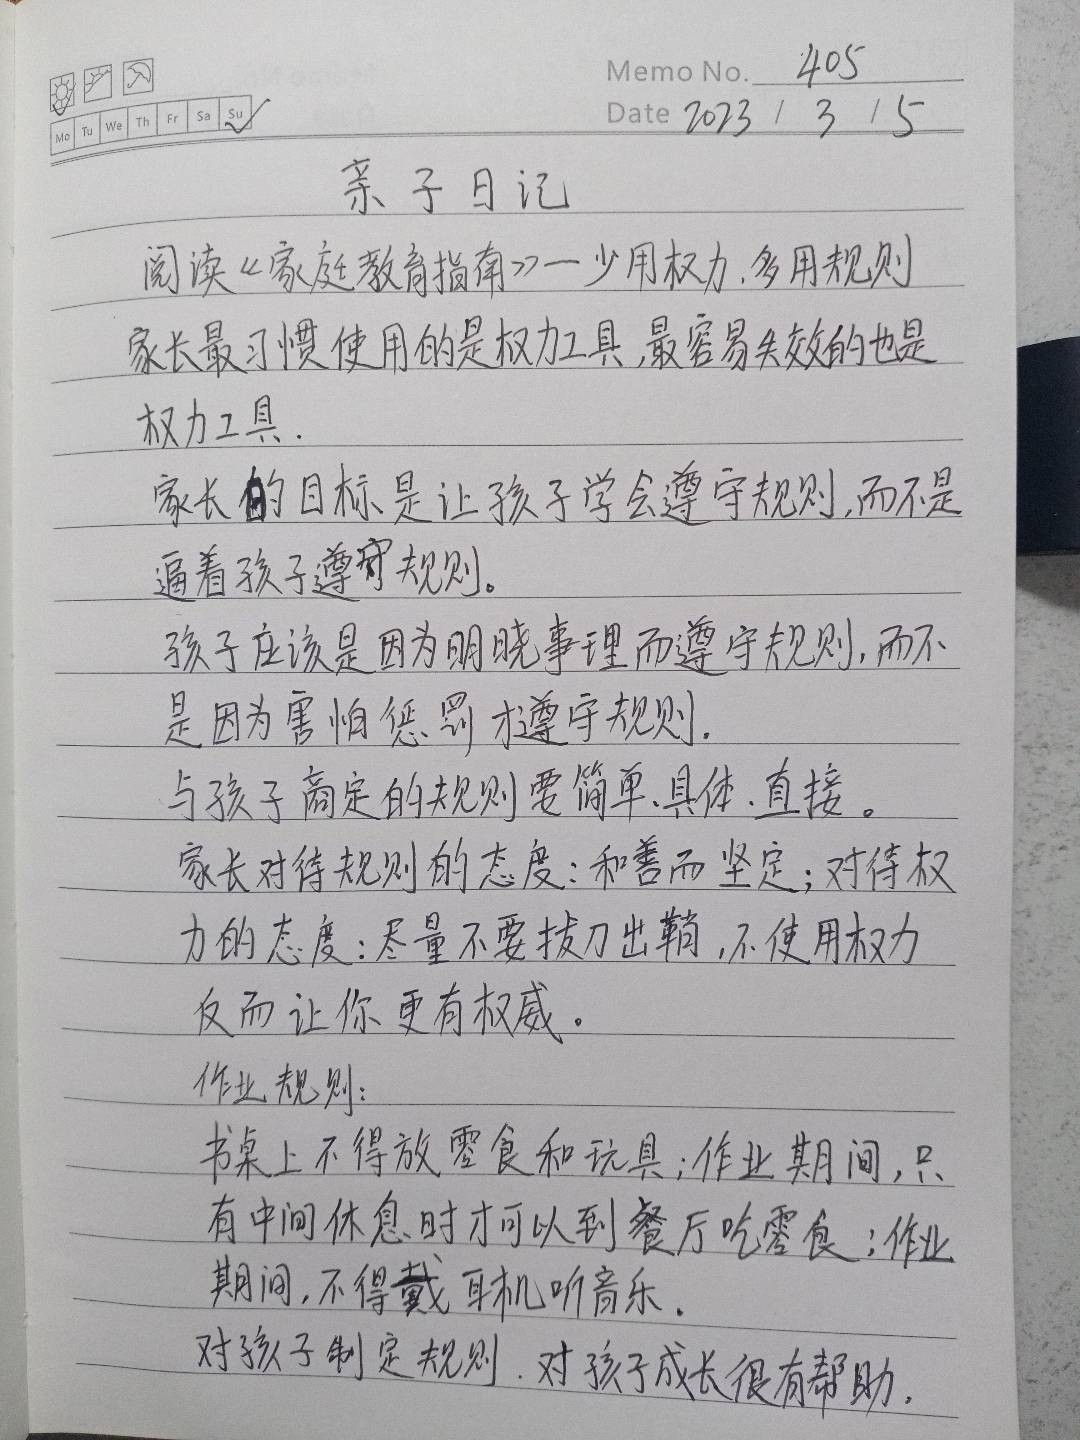 Memo No. 405
Mo Tu We Th Fr Sa Su
Date 2023 / 3 / 5
亲子日记
阅读《家庭教育指南》一少用权力、多用规则
家长最习惯使用的是权力工具,最容易失效的也是
权力工具.
家长的目标是让孩子学会遵守规则,而不是
逼着孩子遵守规则。
孩子应该是因为明晓事理而遵守规则,而不
是因为害怕惩罚才遵守规则.
与孩子商定的规则要简单、具体、直接。
家长对待规则的态度:和善而坚定;对待权
力的态度:尽量不要拔刀出鞘,不使用权力
反而让你更有权威。
作业规则:
书桌上不得放零食和玩具;作业期间,只
有中间休息时才可以到餐厅吃零食;作业
期间,不得戴耳机听音乐.
对孩子制定规则.对孩子成长很有帮助.